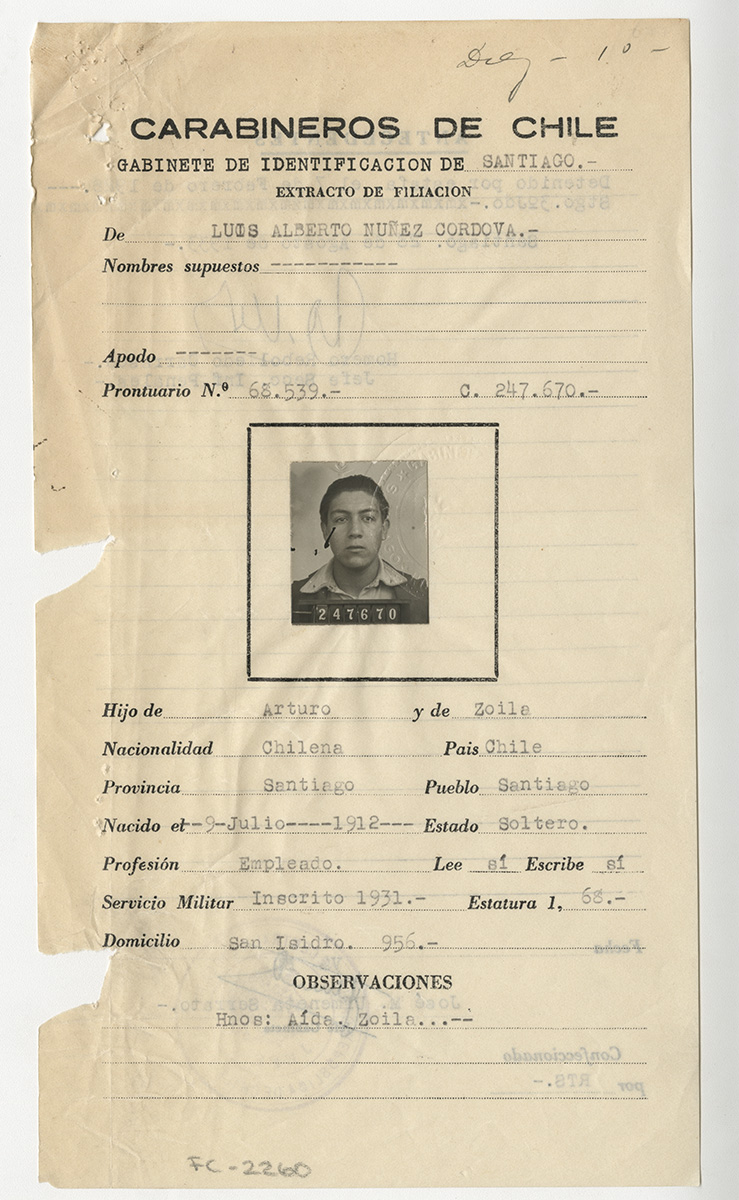 CARABINEROS DE CHILE
GABINETE DE IDENTIFICACION DE SANTIAGO.-
EXTRACTO DE FILIACION
De LUIS ALBERTO NUÑEZ CORDOVA.-
Nombres supuestos -----------
Apodo -------
Prontuario N.º 68.539.- C. 247.670.-
247670
Hijo de Arturo y de Zoila
Nacionalidad Chilena Pais Chile
Provincia Santiago Pueblo Santiago
Nacido el--9-Julio----1912--- Estado Soltero.
Profesión Empleado. Lee sí Escribe sí
Servicio Militar Inscrito 1931.- Estatura 1, 68.-
Domicilio San Isidro. 956.-
OBSERVACIONES
Hnos: Aída. Zoila...--
FC-2260